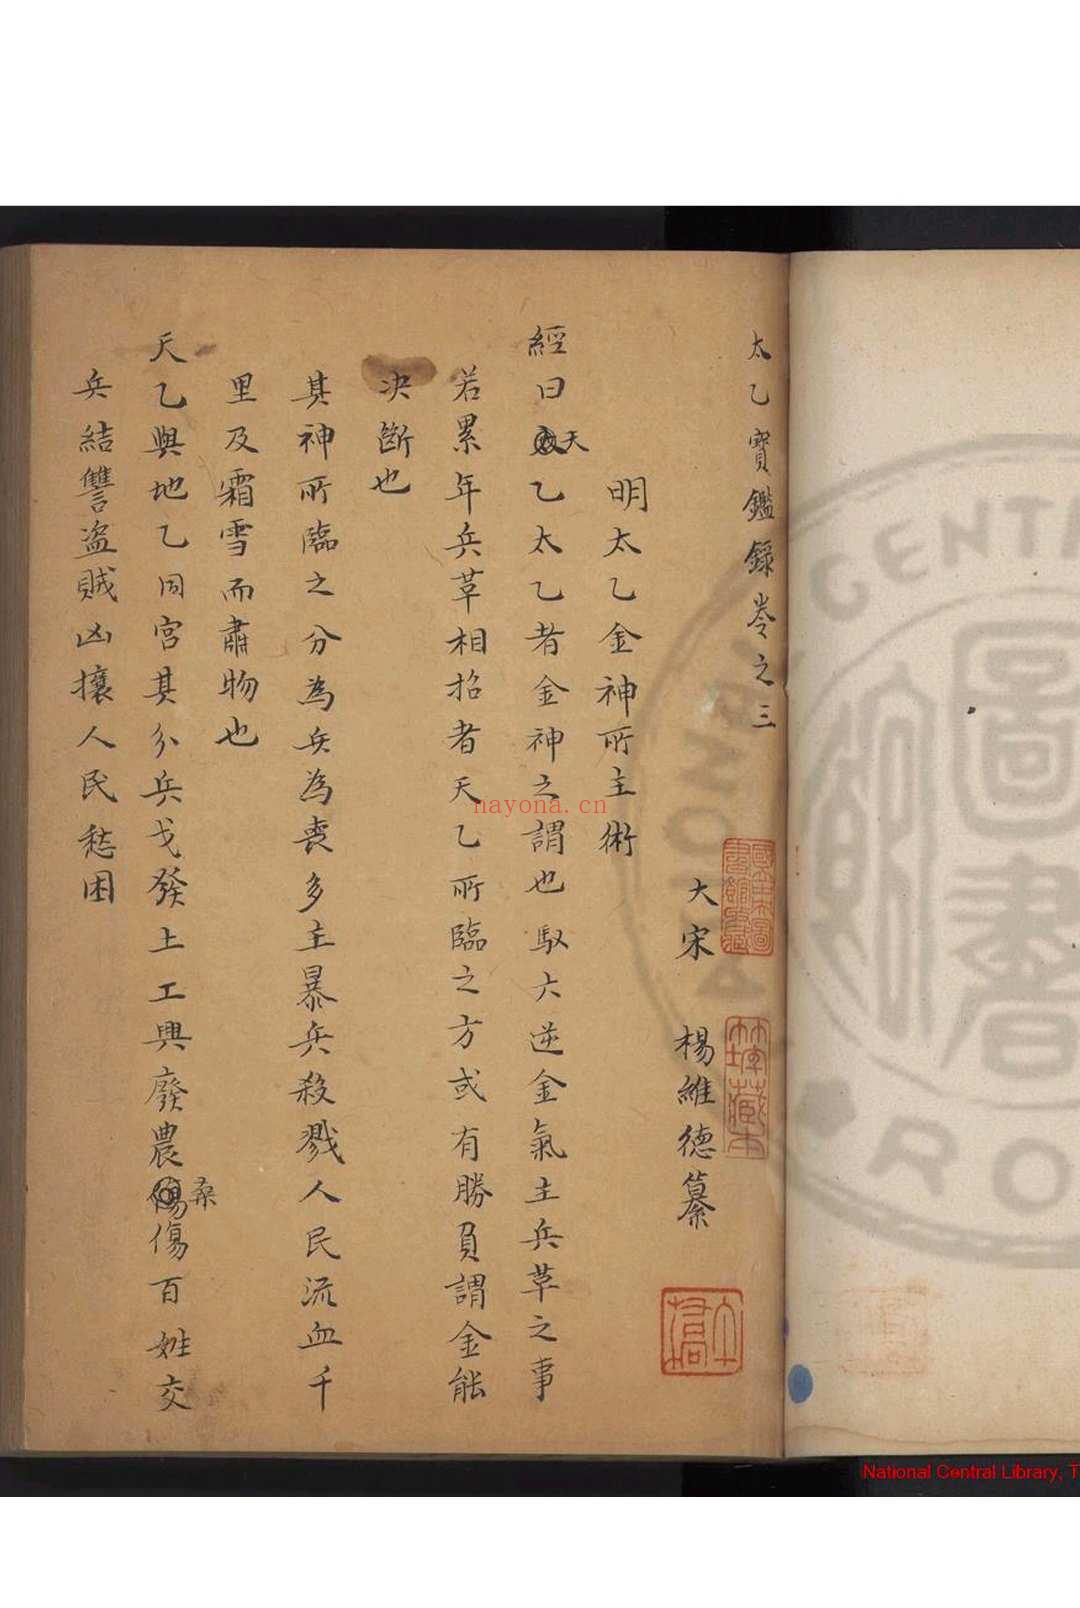 太乙寶鑑錄卷之三
大宋 楊維德纂
明太乙金神所主術
經曰天乙太乙者金神之謂也馭六逆金氣主兵草之事
若累年兵草相招者天乙所臨之方或有勝負謂金能
决斷也
其神所臨之分為兵為喪多主暴兵殺戮人民流血千
里及霜雪而肅物也
天乙與地乙同宫其分兵戈發土工興廢農桑傷百姓交
兵結讐盗賊凶攘人民愁困
nayona.cn
National Central Library, T